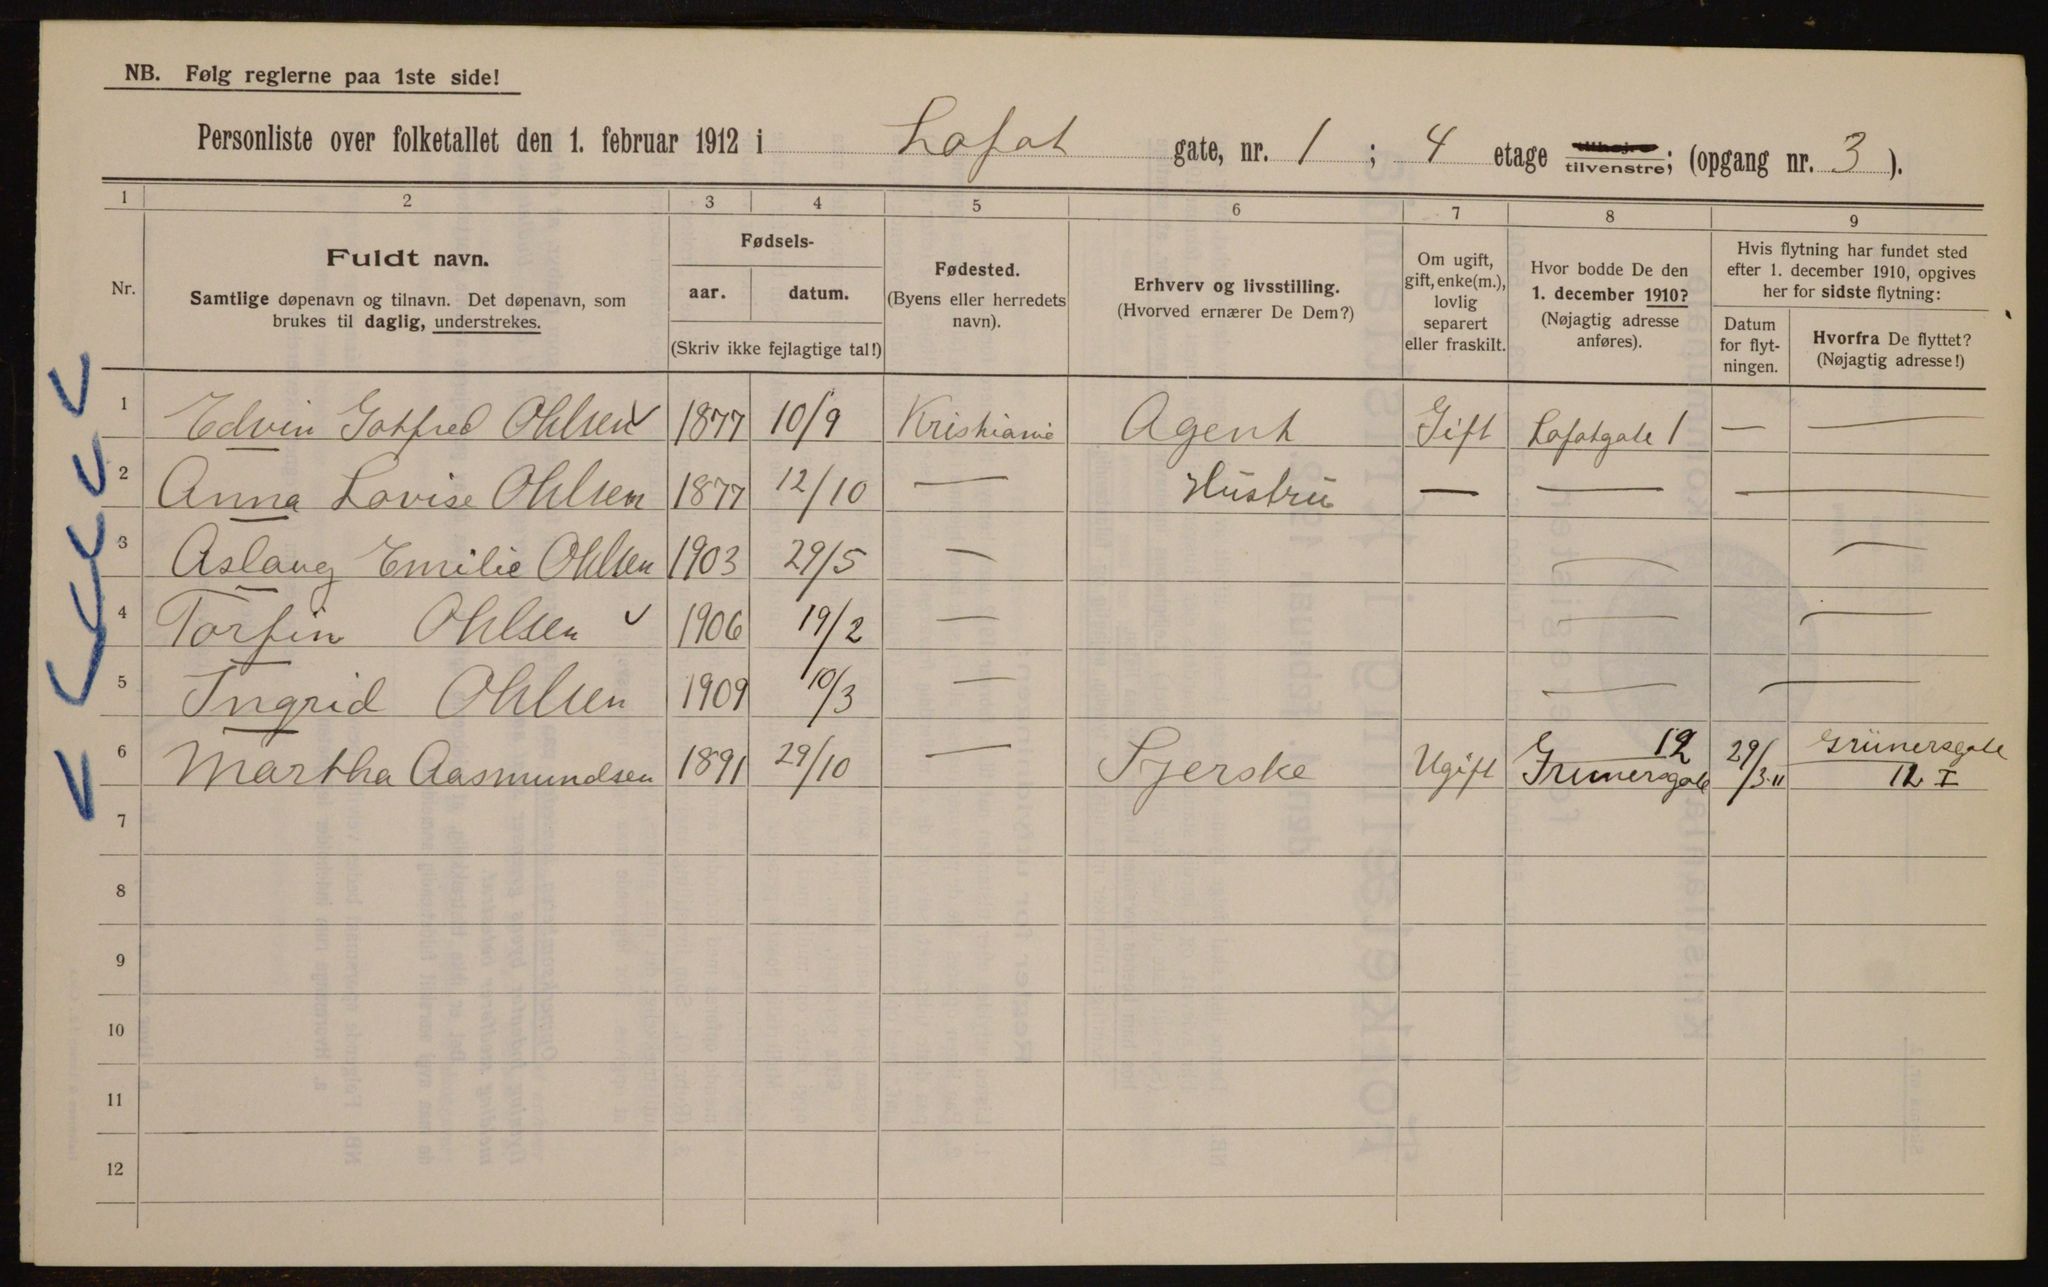 NB. Følg reglerne paa 1ste side!
Personliste over folketallet den 1. februar 1912 i Lofot gate, nr. 1 ; 4 etage tilhøjre tilvenstre; (opgang nr. 3 ).
1 2 3 4 5 6 7 8 9
Nr.
Fuldt navn.
Samtlige døpenavn og tilnavn. Det døpenavn, som
brukes til daglig, understrekes.
Fødsels-
aar. datum.
(Skriv ikke fejlagtige tal!)
Fødested.
(Byens eller herredets
navn).
Erhverv og livsstilling.
(Hvorved ernærer De Dem?)
Om ugift,
gift, enke(m.),
lovlig
separert
eller fraskilt.
Hvor bodde De den
1. december 1910?
(Nøjagtig adresse
anføres).
Hvis flytning har fundet sted
efter 1. december 1910, opgives
her for sidste flytning:
Datum
for flyt-
ningen.
Hvorfra De flyttet?
(Nøjagtig adresse!)
1 Edvin Gotfred Ohlsen 1877 10/9 Kristiania Agent Gift Lofotgate 1 — —
2 Anna Lovise Ohlsen 1877 12/10 — Hustru — — —
3 Aslaug Emilie Ohlsen 1903 29/5 — — —
4 Torfin Ohlsen 1906 19/2 — — —
5 Ingrid Ohlsen 1909 10/3 — — —
6 Martha Aasmundsen 1891 29/10 — Tjerske Ugift Grunersgate 12 29/3-11 Grünersgate 12 I
7
8
9
10
11
12